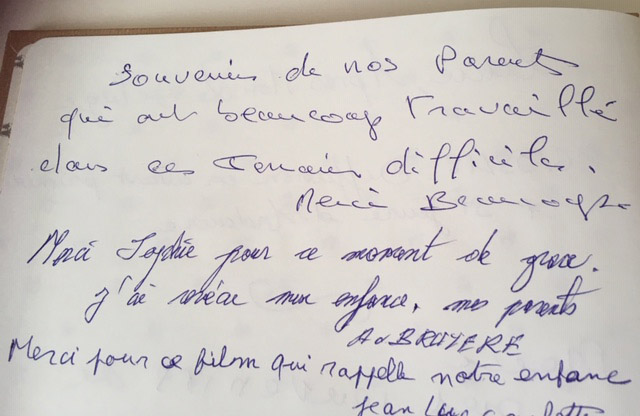 Souvenirs de nos Parents
qui ont beaucoup travaillé
dans ces terrains difficiles.
Merci Beaucoup
Merci Sophie pour ce moment de grace.
J'ai mon enfance, mes parents
A BRUYERE
Merci pour ce film qui rappelle notre enfance
Jean Luc